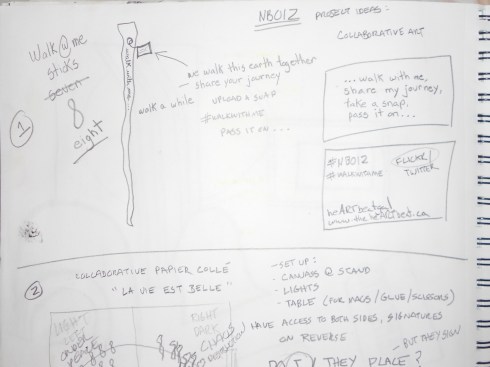 NB012 PROJECT IDEAS:
COLLABORATIVE ART
Walk @ me
sticks
seven
8
eight
1
@ walk with me...
we walk this earth together
— share your journey
walk a while
UPLOAD A SNAP
#WALKWITHME
PASS IT ON...
...walk with me,
share my journey,
take a snap,
pass it on...
#NB012
#WALKWITHME
FLICKR
TWITTER
www.theheARTbeat.ca
2
COLLABORATIVE PAPIER COLLÉ
"LA VIE EST BELLE"
LIGHT
LEFT
ORDER
PEACE
RIGHT
DARK
CHAOS
- SET UP:
- CANVAS @ STAND
- LIGHTS
- TABLE (FOR MAGS/GLUE/SCISSORS)
HAVE ACCESS TO BOTH SIDES, SIGNATURES
ON REVERSE
- BUT THEY SIGN
THEY PLACE?